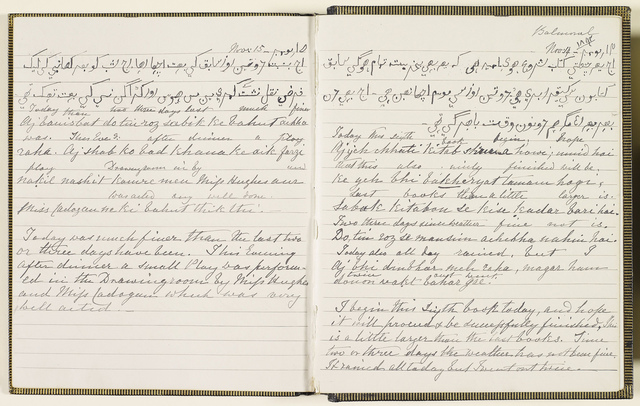 Nov 15 –
آج بہ نسبت دو تین روز سابق کے بہت اچھا رہا آج شب کو بعد کھانے کے ایک
نقل نشست کے کمرے میں مس اور مس نے کی بہت ٹھیک تھی
Today than two three days last much finer
Aj banisbat do tin roz sabik ke bahut achha
was. This Eve: after dinner a Play
raha. Aj shab ko bad khana ke aik farze
play Drawingroom in by and
nakil nashist kamre men Miss Hughes aur
was acted very well done
Miss Cadogan ne ki bahut thik thi. —
Today was much finer than the last two
or three days have been. This Evening
after dinner a small Play was perform-
ed in the Drawingroom by Miss Hughes
and Miss Cadogan which was very
well acted. —
Balmoral
Nov 4 1892
آج یہ چھٹی کتاب شروع ہوئی امید ہے کہ یہ بھی تمام ہوگی سابق
کتابوں سے کسی قدر بڑی ہے دو تین روز سے موسم اچھا نہیں ہے آج بھی دن
بھر رہا مگر ہم دونوں وقت باہر گئے
Today this sixth book begins hope
Aj yeh chhati kitab shuru houi; umid hai
that this also safely finished will be.
ke yeh bhi bakheryat tamam hoge.
Last books than a little larger is.
Sabak kitabon se kise kadar bari hai.
Two three days since weather fine not is.
Do, tin roz se mausim achchha nahin hai.
Today also all day rained, but I
Aj bhi dinbhar menh raha, magar ham
twice out went.
donon wakt bahar gae.
I begin this sixth book today, and hope
it will proceed & be successfully finished, This
is a little larger than the last books. Since
two or three days the weather has not been fine,
It rained all today but I went out twice.